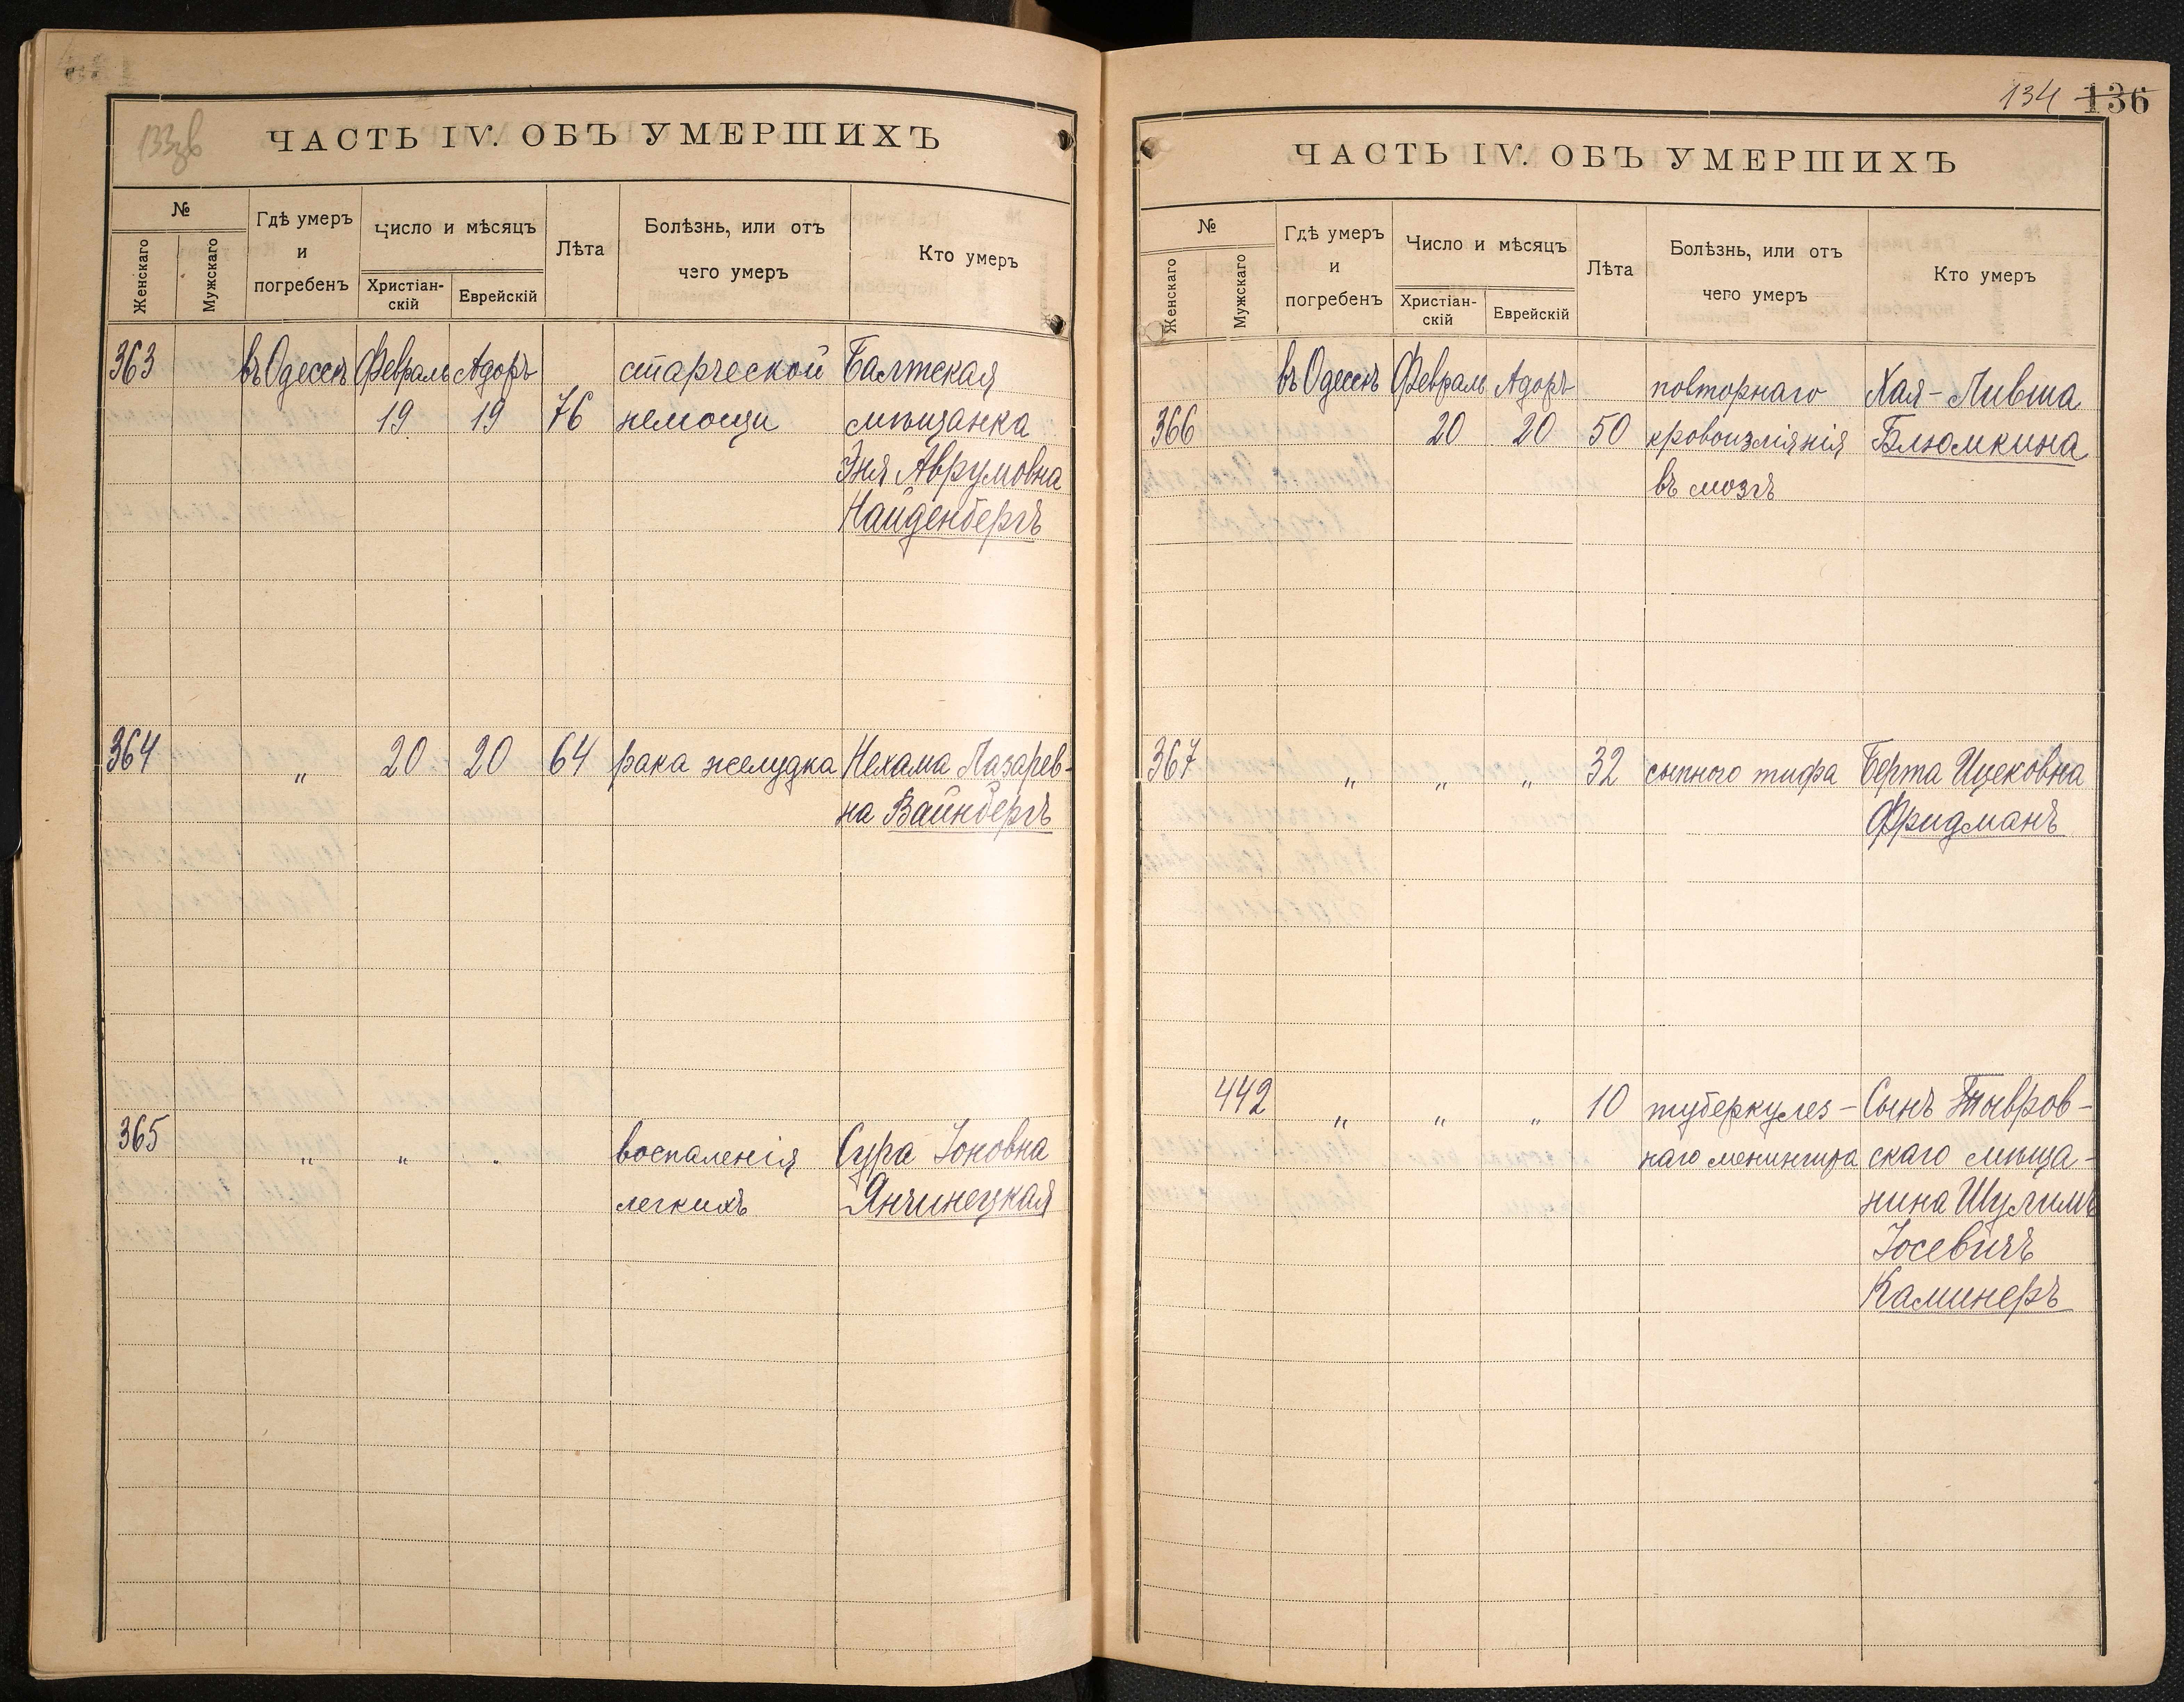 133зв
ЧАСТЬ IV. ОБЪ УМЕРШИХЪ
№
Женскаго
Мужскаго
Гдѣ умеръ
и
погребенъ
Число и мѣсяцъ
Христіан-
скій
Еврейскій
Лѣта
Болѣзнь, или отъ
чего умеръ
Кто умеръ
363 въ Одессѣ Февраль Адоръ старческой Балтская
19 19 76 немощи мѣщанка
Эня Аврумовна
Найденбергъ
364 „ 20 20 64 рака желудка Нехама Лазарев-
на Вайнбергъ
365 „ „ „ воспаленія Сура Іоновна
легкихъ Янчинецкая
134 136
ЧАСТЬ IV. ОБЪ УМЕРШИХЪ
№
Женскаго
Мужскаго
Гдѣ умеръ
и
погребенъ
Число и мѣсяцъ
Христіан-
скій
Еврейскій
Лѣта
Болѣзнь, или отъ
чего умеръ
Кто умеръ
въ Одессѣ Февраль Адоръ повторнаго Хая-Ливша
366 20 20 50 кровоизліянія Блюмкина
въ мозгъ
367 „ „ „ 32 сыпного тифа Берта Ицековна
Фридманъ
442 „ „ „ 10 туберкулез- Сынъ Тывров-
наго менингита скаго мѣща-
нина Шулимъ
Іосевичъ
Каминеръ